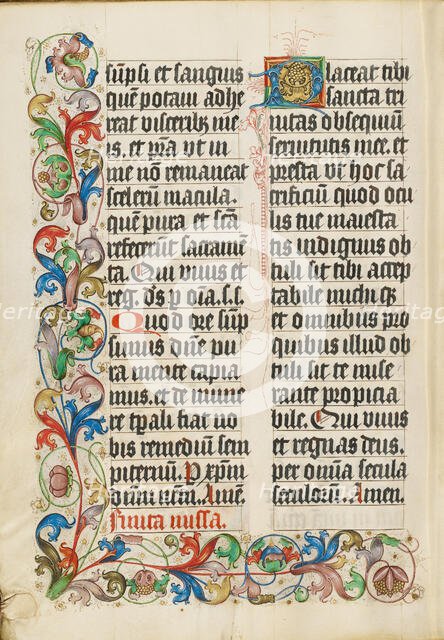 sumpsi et sanguis
quē potaui adhe
reat visceribꝫ me
is. et p̄ta vt in
me nō remaneat
scelerū macula.
quē pura et scā
refecerūt sacramē
ta. Qui viuis et
reg. ds̄ p oīa. s. s.
Quod ore sūp
simus dn̄e pu
ra mente capia
mus. et de mune
re tp̄ali fiat no
bis remedium sem
piternum. P xp̄m
dn̄m nr̄m. Amē.
Finita missa.
Placeat tibi
sancta tri
nitas obsequium
seruitutis mee. et
presta vt hoc sa
crificiū quod ocu
lis tue maiesta
tis indignus ob
tuli sit tibi accep
tabile michiqꝫ
et omnibus pro
quibus illud ob
tuli sit te mise
rante propicia
bile. Qui viuis
et regnas deus.
per omnia secula
seculorum. Amen.